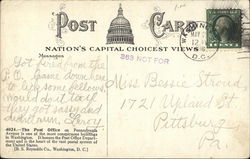 POST CARD
NATION'S CAPITAL CHOICEST VIEWS
Messages
363 NOT FOR
Got fired from the
P.O. Came down here
to lick some fellows
would don't think
they got sassy and
didn't own,
4024—The Post Office on Pennsylvania
Avenue is one of the most conspicuous buildings
in Washington. It houses the Post Office Depart-
ment and is the heart of the vast postal system of
the United States.
(B. S. Reynolds Co., Washington, D. C.)
Miss Bessie Stroud
1721 Upland St.
Pittsburg
Pa.
D.C.